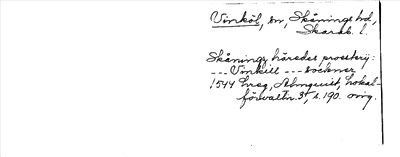 Vinköl, sn, Skånings hd,
Skarab. l.
Skånings häredes prosterij:
--- Vinkill --- sockner
1544 hreg, Almquist, Lokal-
förvaltn. 3, s. 190. orig.